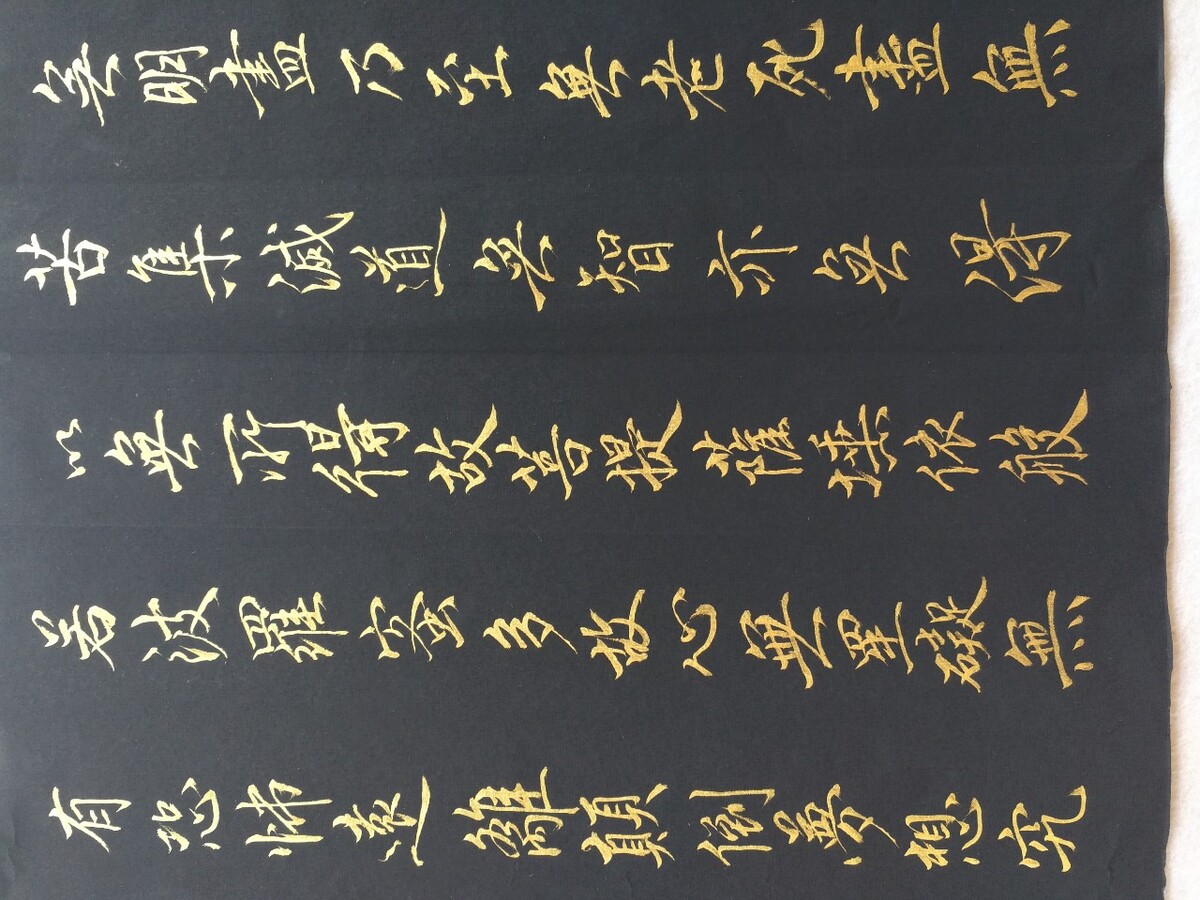 無明盡乃至無老死盡無
苦集滅道無智亦無得
以無所得故菩提薩埵依般
若波羅蜜多故心無罣礙無
有恐怖遠離顛倒夢想究